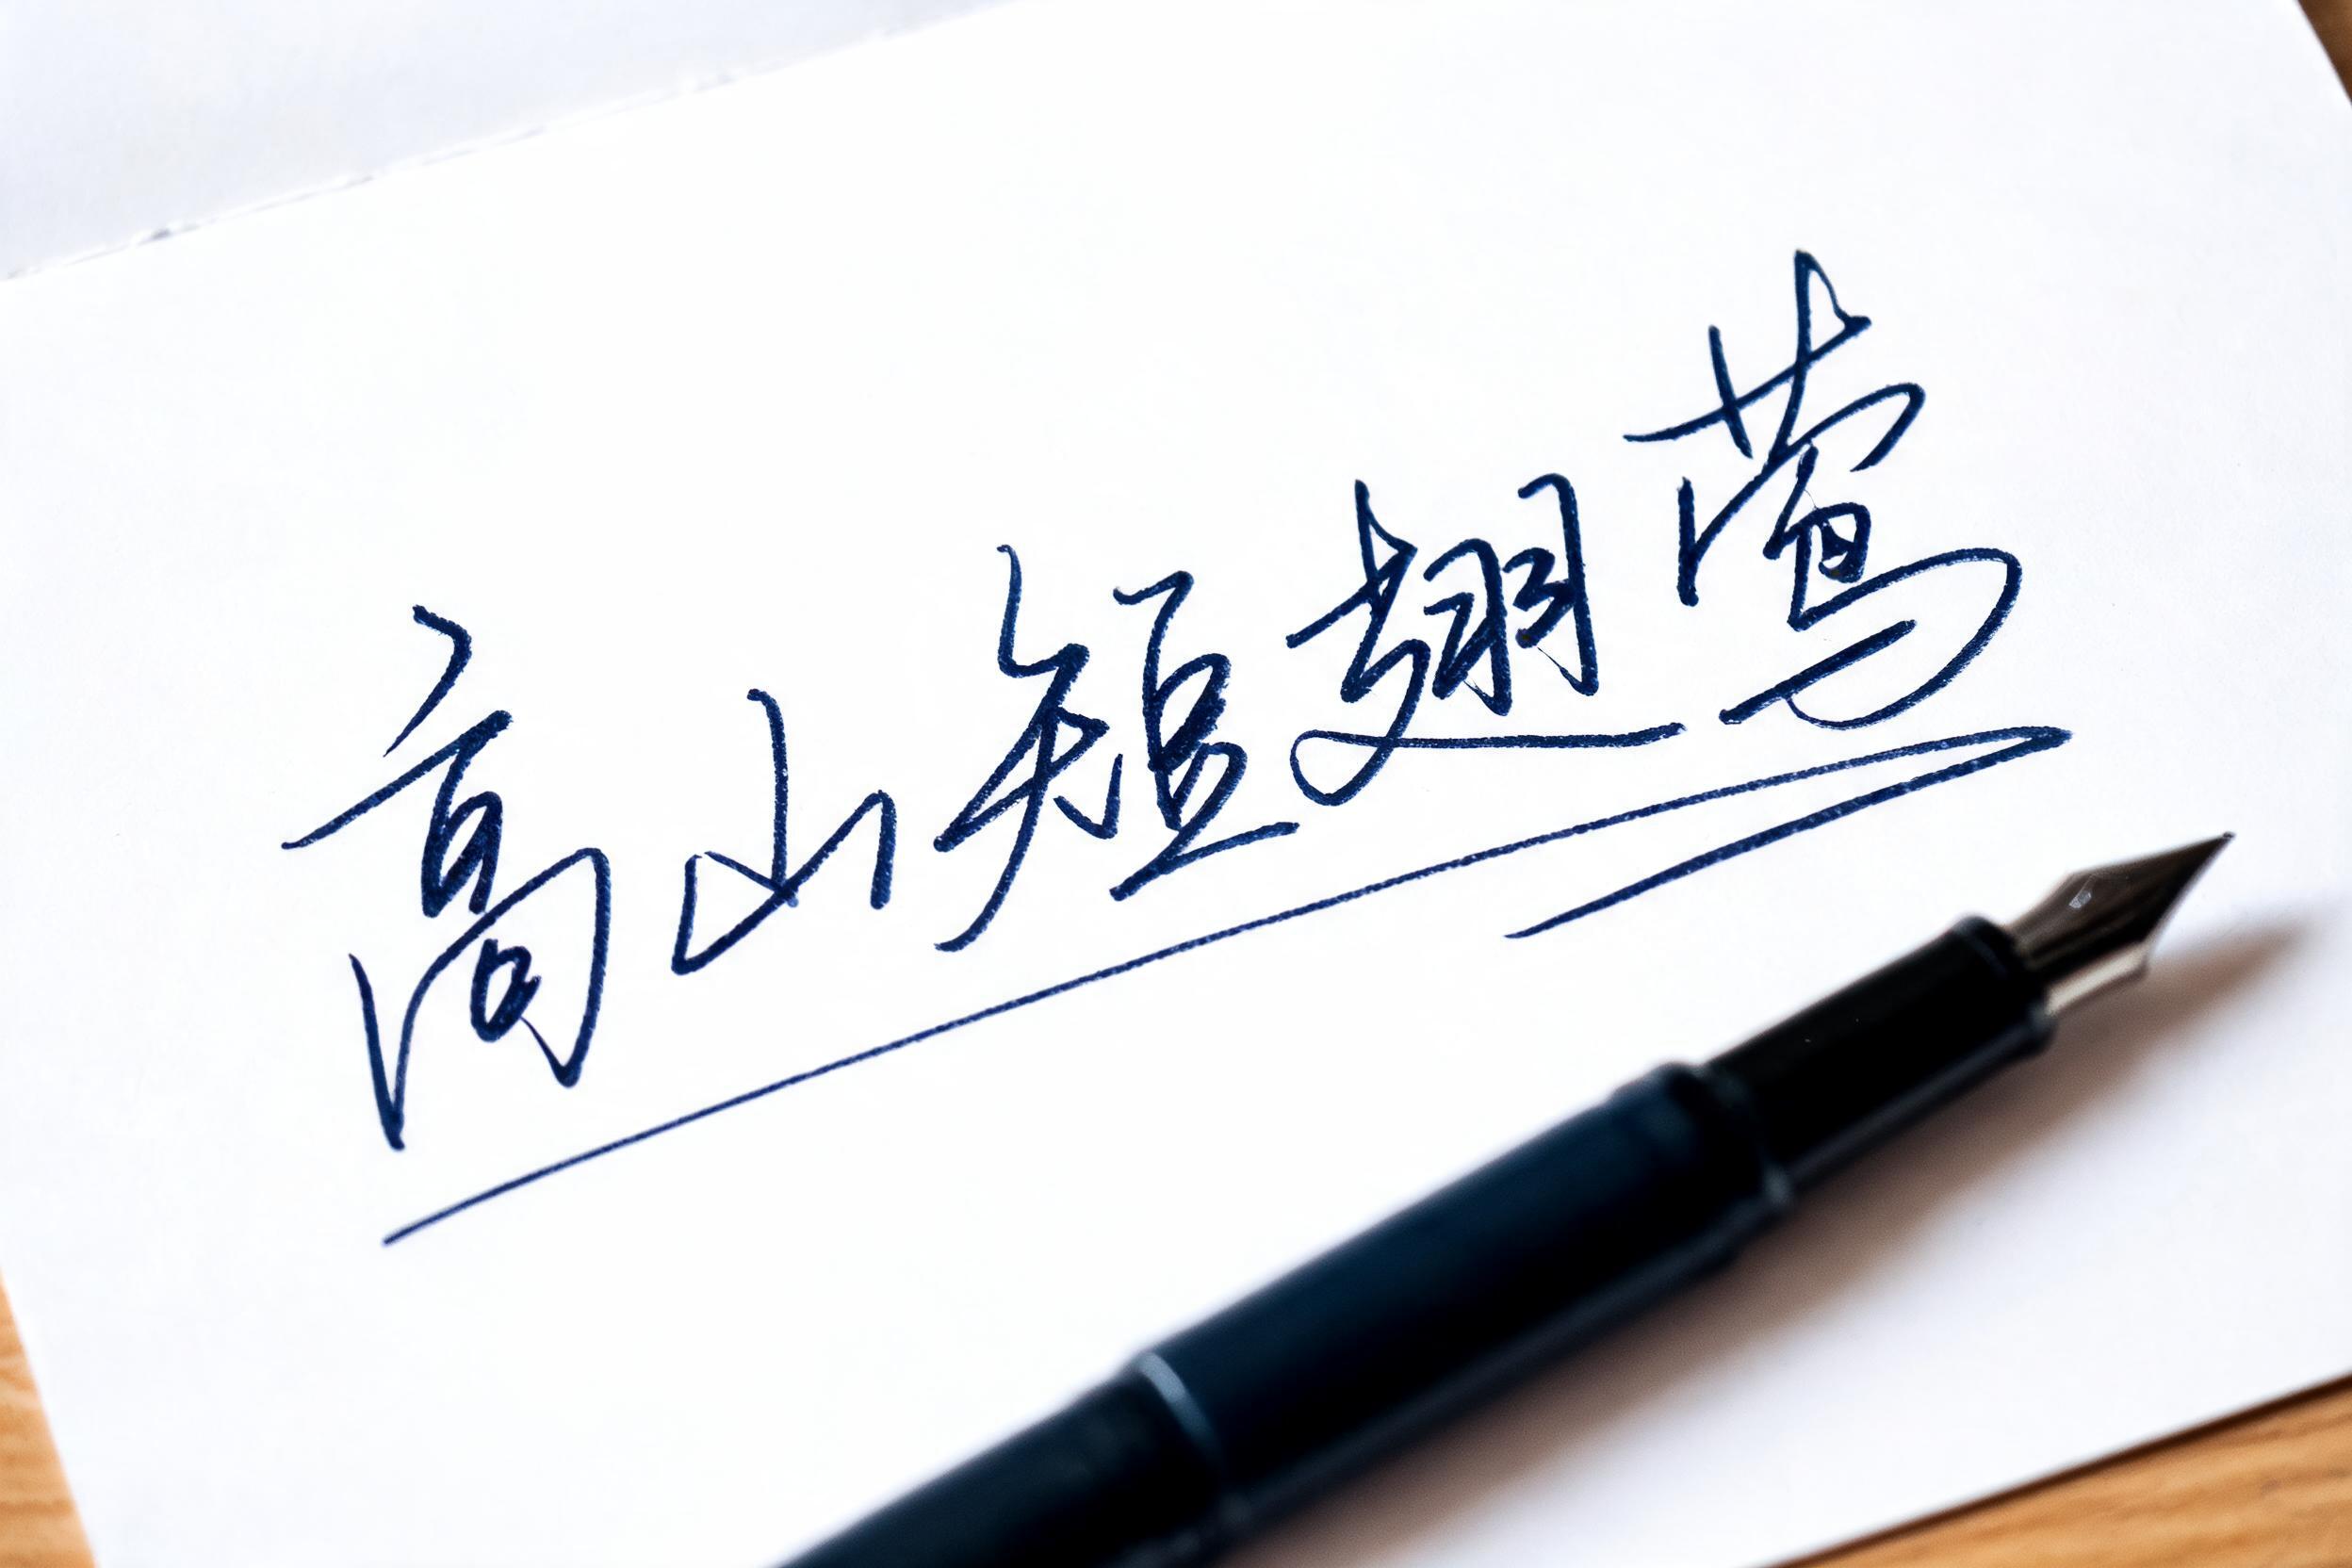 高山短翅莺